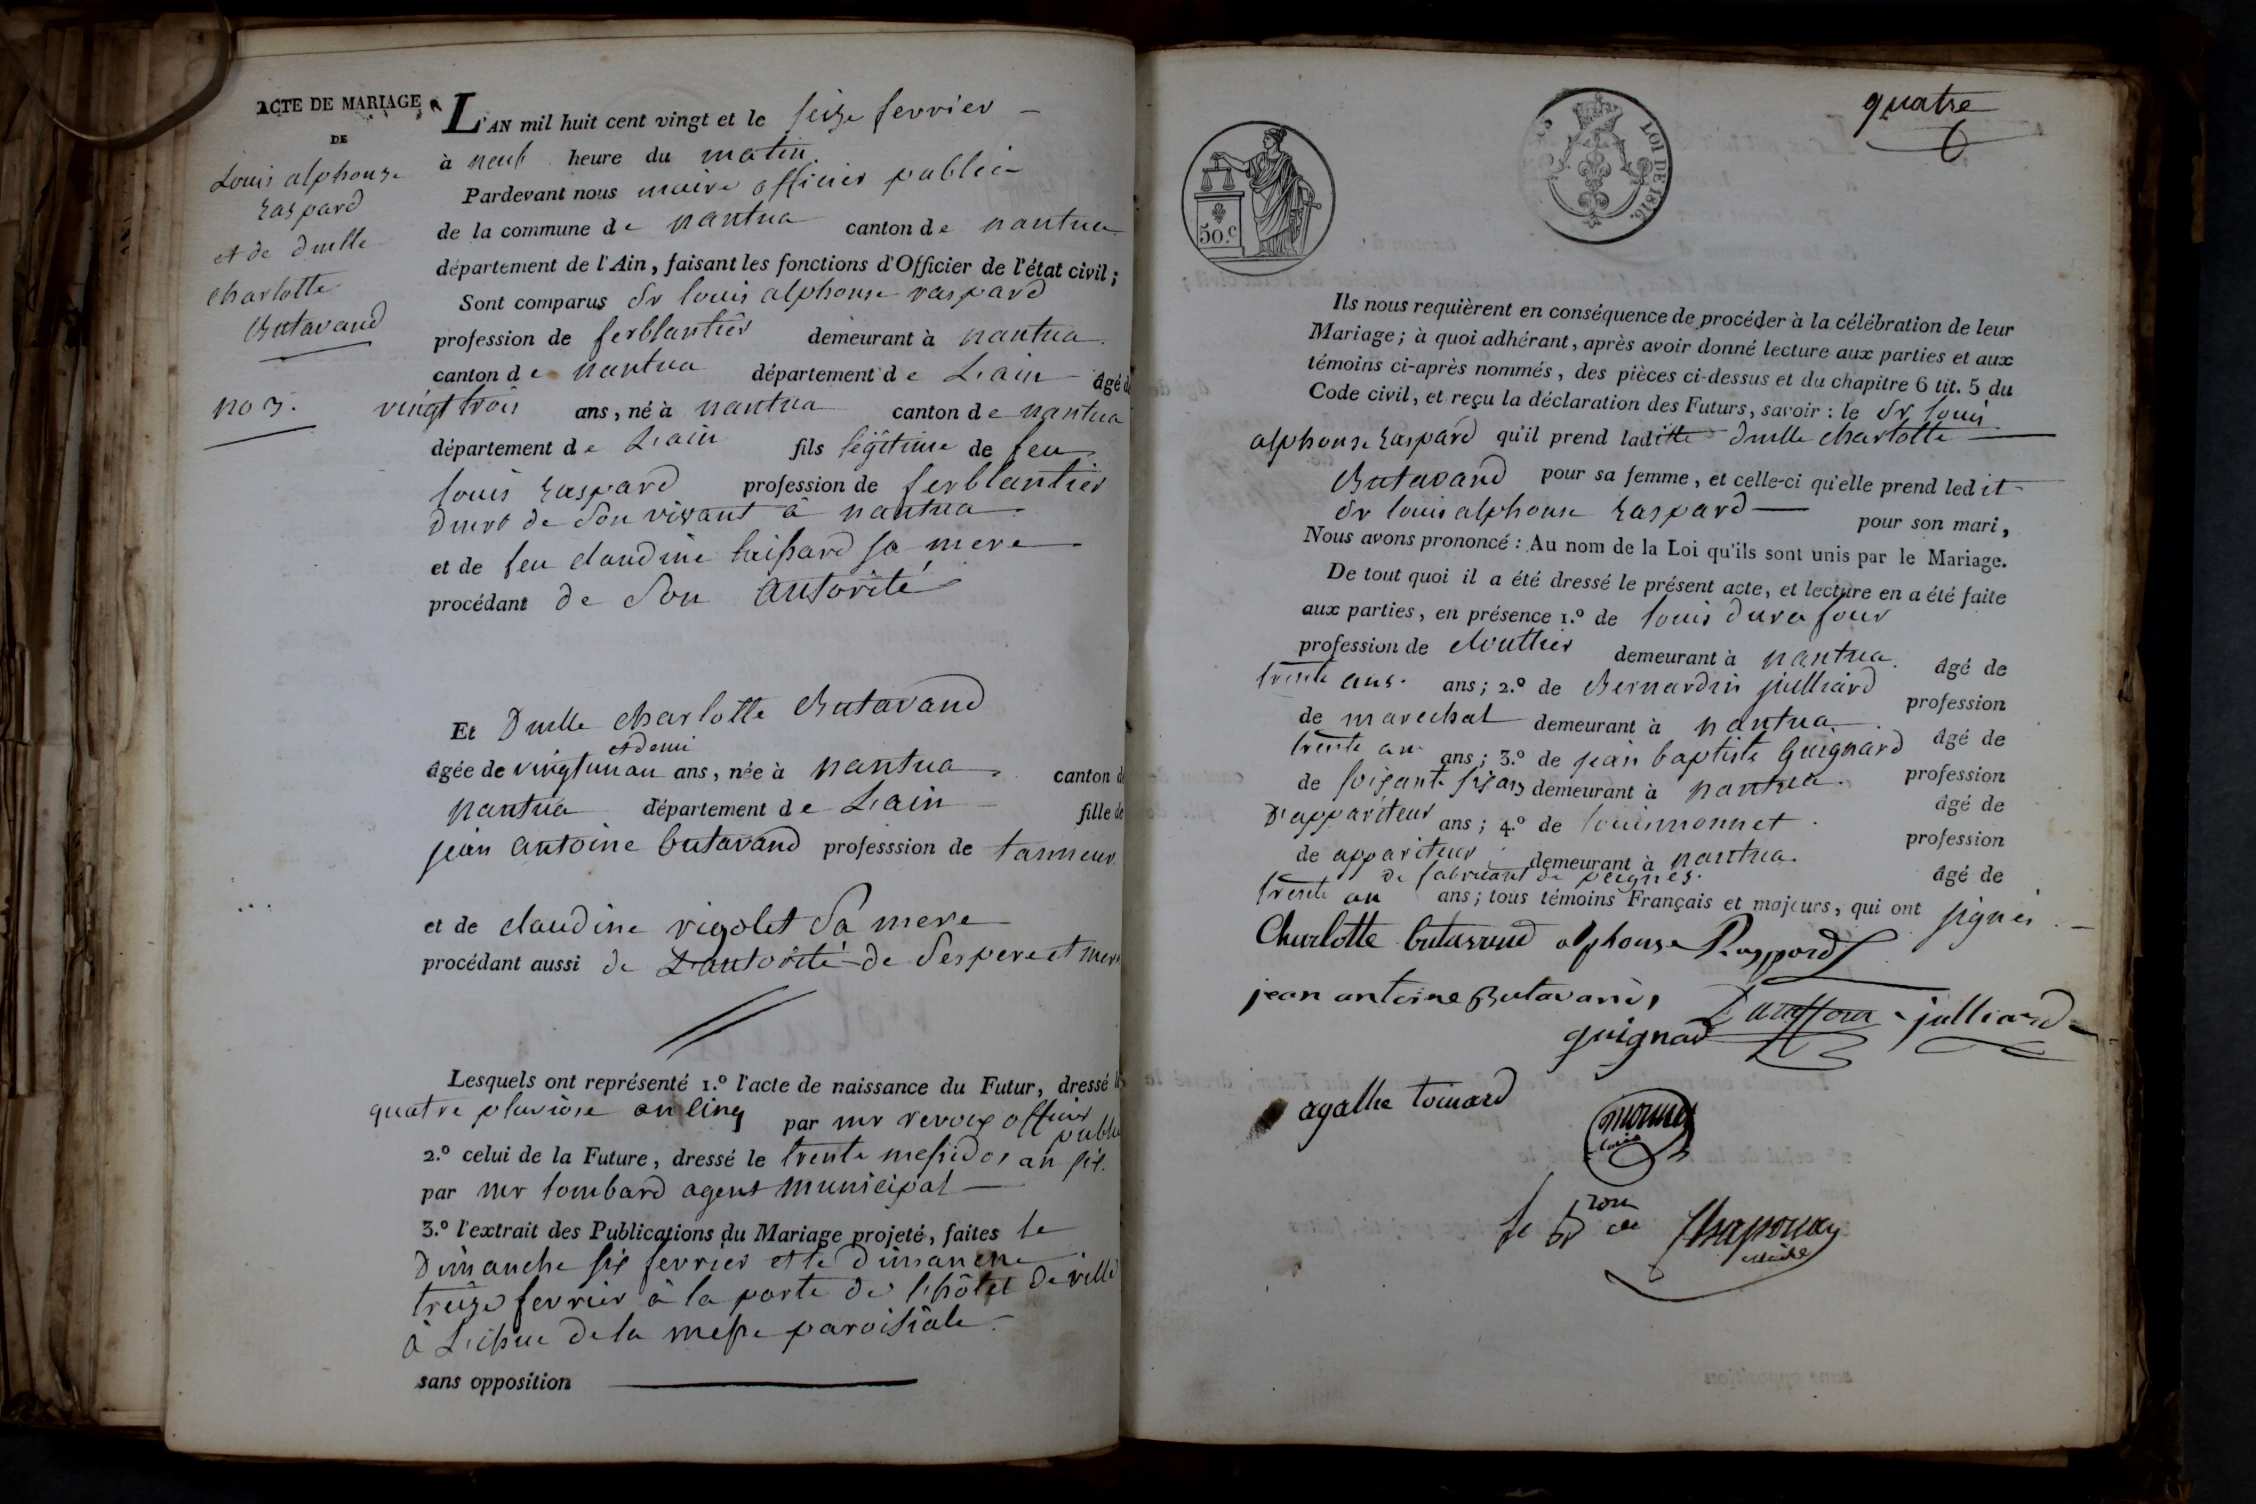 ACTE DE MARIAGE
DE
Louis alphonse
Raspard
et de dmlle
charlotte
Butavand
no 3.
L'AN mil huit cent vingt et le seize fevrier
à neuf heure du matin.
Pardevant nous maire officier public
de la commune de nantua canton de nantua
département de l'Ain, faisant les fonctions d'Officier de l'état civil;
Sont comparus Sr louis alphonse raspard
profession de ferblantier demeurant à nantua
canton de nantua département de L'ain âgé de
vingt trois ans, né à nantua canton de nantua
département de L'ain fils légitime de feu
louis Raspard profession de ferblantier
de son vivant à nantua
et de feu claudine sa mere
procédant de son autorité
Et Dmlle charlotte Butavand
et demi
âgée de vingt un an ans, née à nantua canton de
nantua département de L'ain fille de
jean antoine butavand professsion de tanneur
et de claudine rigolet sa mere
procédant aussi de L'autorité de ses pere et mere
Lesquels ont représenté 1.º l'acte de naissance du Futur, dressé le
quatre pluviose an cinq par mr officier
public
2.º celui de la Future, dressé le trente messidor an six.
par mr lombard agent municipal
3.º l'extrait des Publications du Mariage projeté, faites le
Dimanche six fevrier et le Dimanche
treize fevrier à la porte de l'hôtel de ville
à L'issue de la messe paroissiale.
sans opposition
quatre
50.c
LOI DE 1816.
Ils nous requièrent en conséquence de procéder à la célébration de leur
Mariage; à quoi adhérant, après avoir donné lecture aux parties et aux
témoins ci-après nommés, des pièces ci-dessus et du chapitre 6 tit. 5 du
Code civil, et reçu la déclaration des Futurs, savoir: le Sr louis
alphonse Raspard qu'il prend laditte dmlle charlotte
Butavand pour sa femme, et celle-ci qu'elle prend ledit
Sr louis alphonse Raspard pour son mari,
Nous avons prononcé: Au nom de la Loi qu'ils sont unis par le Mariage.
De tout quoi il a été dressé le présent acte, et lecture en a été faite
aux parties, en présence 1.º de louis durafour
profession de clouttier demeurant à nantua. âgé de
trente ans. ans; 2.º de Bernardin julliard profession
de marechal demeurant à nantua. âgé de
trente an ans; 3.º de jean baptiste Guignard profession
de soixante six ans demeurant à nantua. âgé de
d'appariteur ans; 4.º de louis monnet. profession
de appariteur demeurant à nantua. âgé de
de fabricant de peignes.
trente an ans; tous témoins Français et majeurs, qui ont signés.
Charlotte butavand alphonse Raspard
jean antoine Butavand, Duraffour julliard
guignard
agathe toinard
monnet
louis